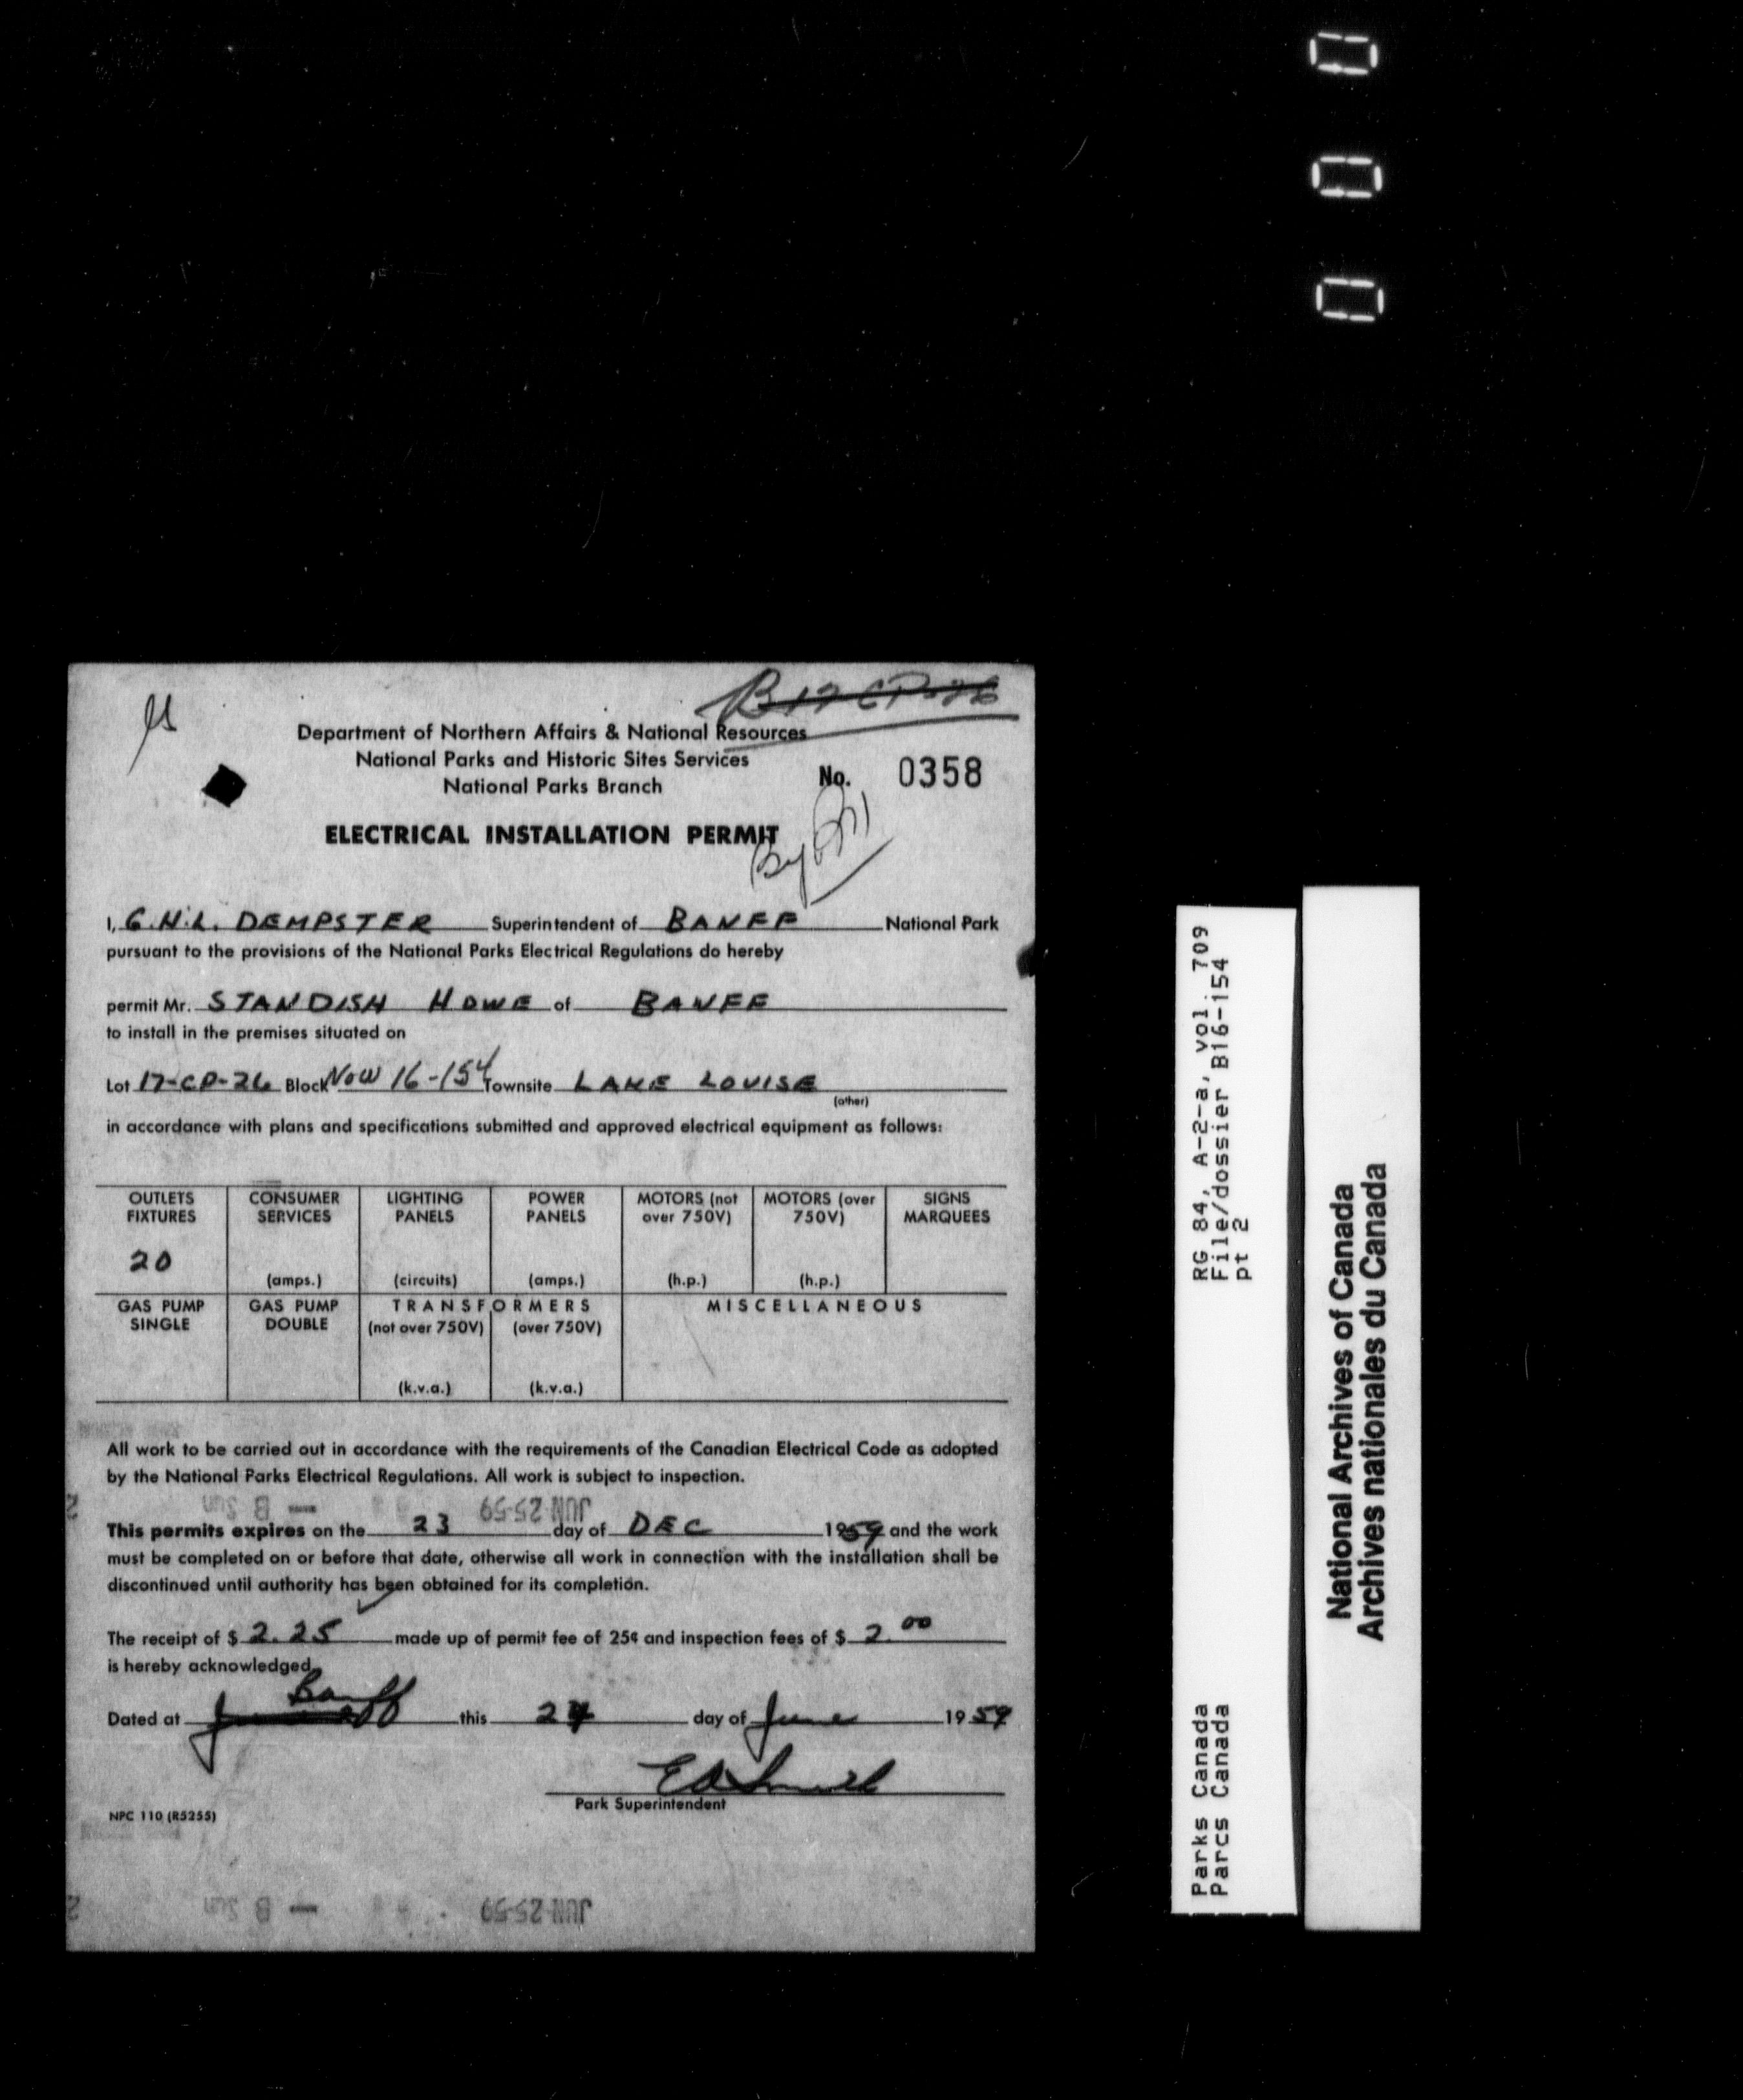 000
B17CP-26
Department of Northern Affairs & National Resources
National Parks and Historic Sites Services
National Parks Branch
No. 0358
ELECTRICAL INSTALLATION PERMIT
By
I, G.H.L. DEMPSTER Superintendent of BANFF National Park
pursuant to the provisions of the National Parks Electrical Regulations do hereby
permit Mr. STANDISH HOWE of BANFF
to install in the premises situated on
Lot 17-CP-26 Block Now 16-154 Townsite LAKE LOUISE
(other)
in accordance with plans and specifications submitted and approved electrical equipment as follows:
OUTLETS FIXTURES 20
CONSUMER SERVICES (amps.)
LIGHTING PANELS (circuits)
POWER PANELS (amps.)
MOTORS (not over 750V) (h.p.)
MOTORS (over 750V) (h.p.)
SIGNS MARQUEES
GAS PUMP SINGLE
GAS PUMP DOUBLE
TRANSFORMERS
(not over 750V) (k.v.a.)
(over 750V) (k.v.a.)
MISCELLANEOUS
All work to be carried out in accordance with the requirements of the Canadian Electrical Code as adopted
by the National Parks Electrical Regulations. All work is subject to inspection.
JUN-25-59
This permits expires on the 23 day of DEC 1959 and the work
must be completed on or before that date, otherwise all work in connection with the installation shall be
discontinued until authority has been obtained for its completion.
The receipt of $ 2.25 made up of permit fee of 25¢ and inspection fees of $ 2.00
is hereby acknowledged.
Dated at Banff this 24 day of June 1959
Park Superintendent
NPC 110 (R5255)
JUN-25-59
RG 84, A-2-a, vol. 709
File/dossier B16-154
pt 2
Parks Canada
Parcs Canada
National Archives of Canada
Archives nationales du Canada